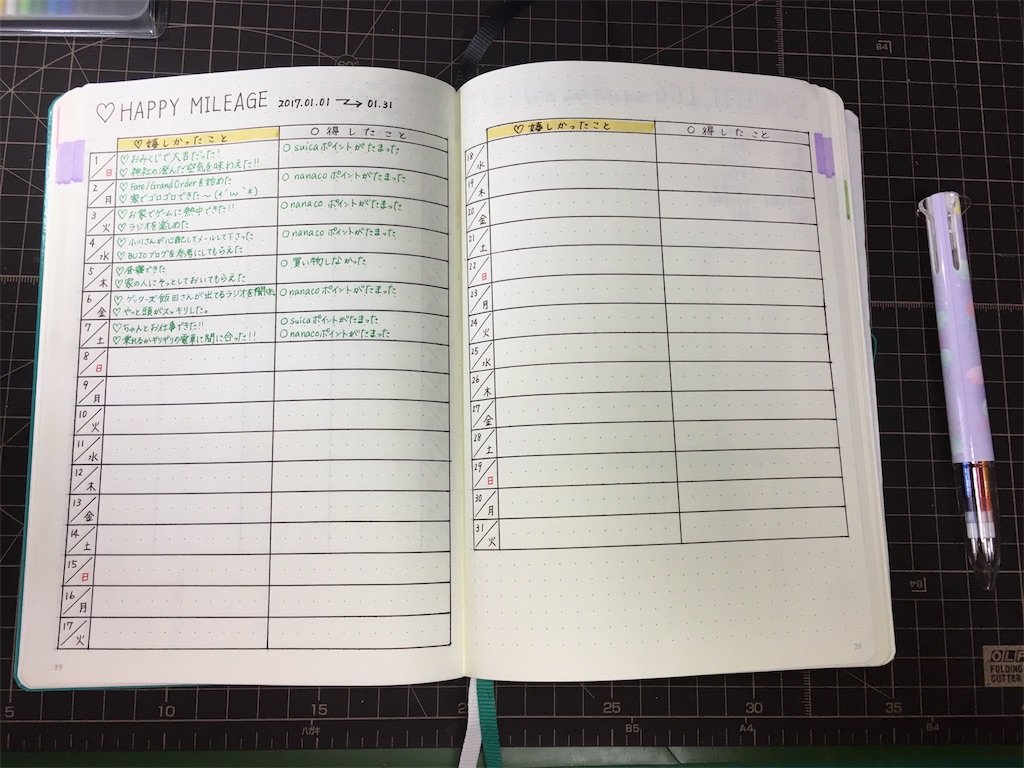 ♡HAPPY MILEAGE 2017.01.01 → 01.31
♡嬉しかったこと
○得したこと
1/日
♡おみくじで大吉だった!
♡神社の澄んだ空気を味わえた!!
○suicaポイントがたまった
2/月
♡Fate/Grand Orderを始めた
♡家でゴロゴロできた〜
○nanacoポイントがたまった
3/火
♡お家でゲームに熱中できた!!
♡ラジオを楽しめた
○nanacoポイントがたまった
4/水
♡小川さんが心配してメールして下さった
♡BUJOブログを参考にしてもらえた
○nanacoポイントがたまった
5/木
♡昼寝できた
♡家の人にそっとしておいてもらえた
○買い物しなかった
6/金
♡ゲッターズ飯田さんが出てるラジオを聞けた
♡やっと頭がスッキリした。
○nanacoポイントがたまった
7/土
♡ちゃんとお仕事できた!!
♡乗れるかギリギリの電車に間に合った!!
○suicaポイントがたまった
○nanacoポイントがたまった
8/日
9/月
10/火
11/水
12/木
13/金
14/土
15/日
16/月
17/火
19
♡嬉しかったこと
○得したこと
18/水
19/木
20/金
21/土
22/日
23/月
24/火
25/水
26/木
27/金
28/土
29/日
30/月
31/火
20
B4
B4
OLF
FOLDING
CUTTER
5 10 15 25 30 35
ハガキ B5 A4 B4